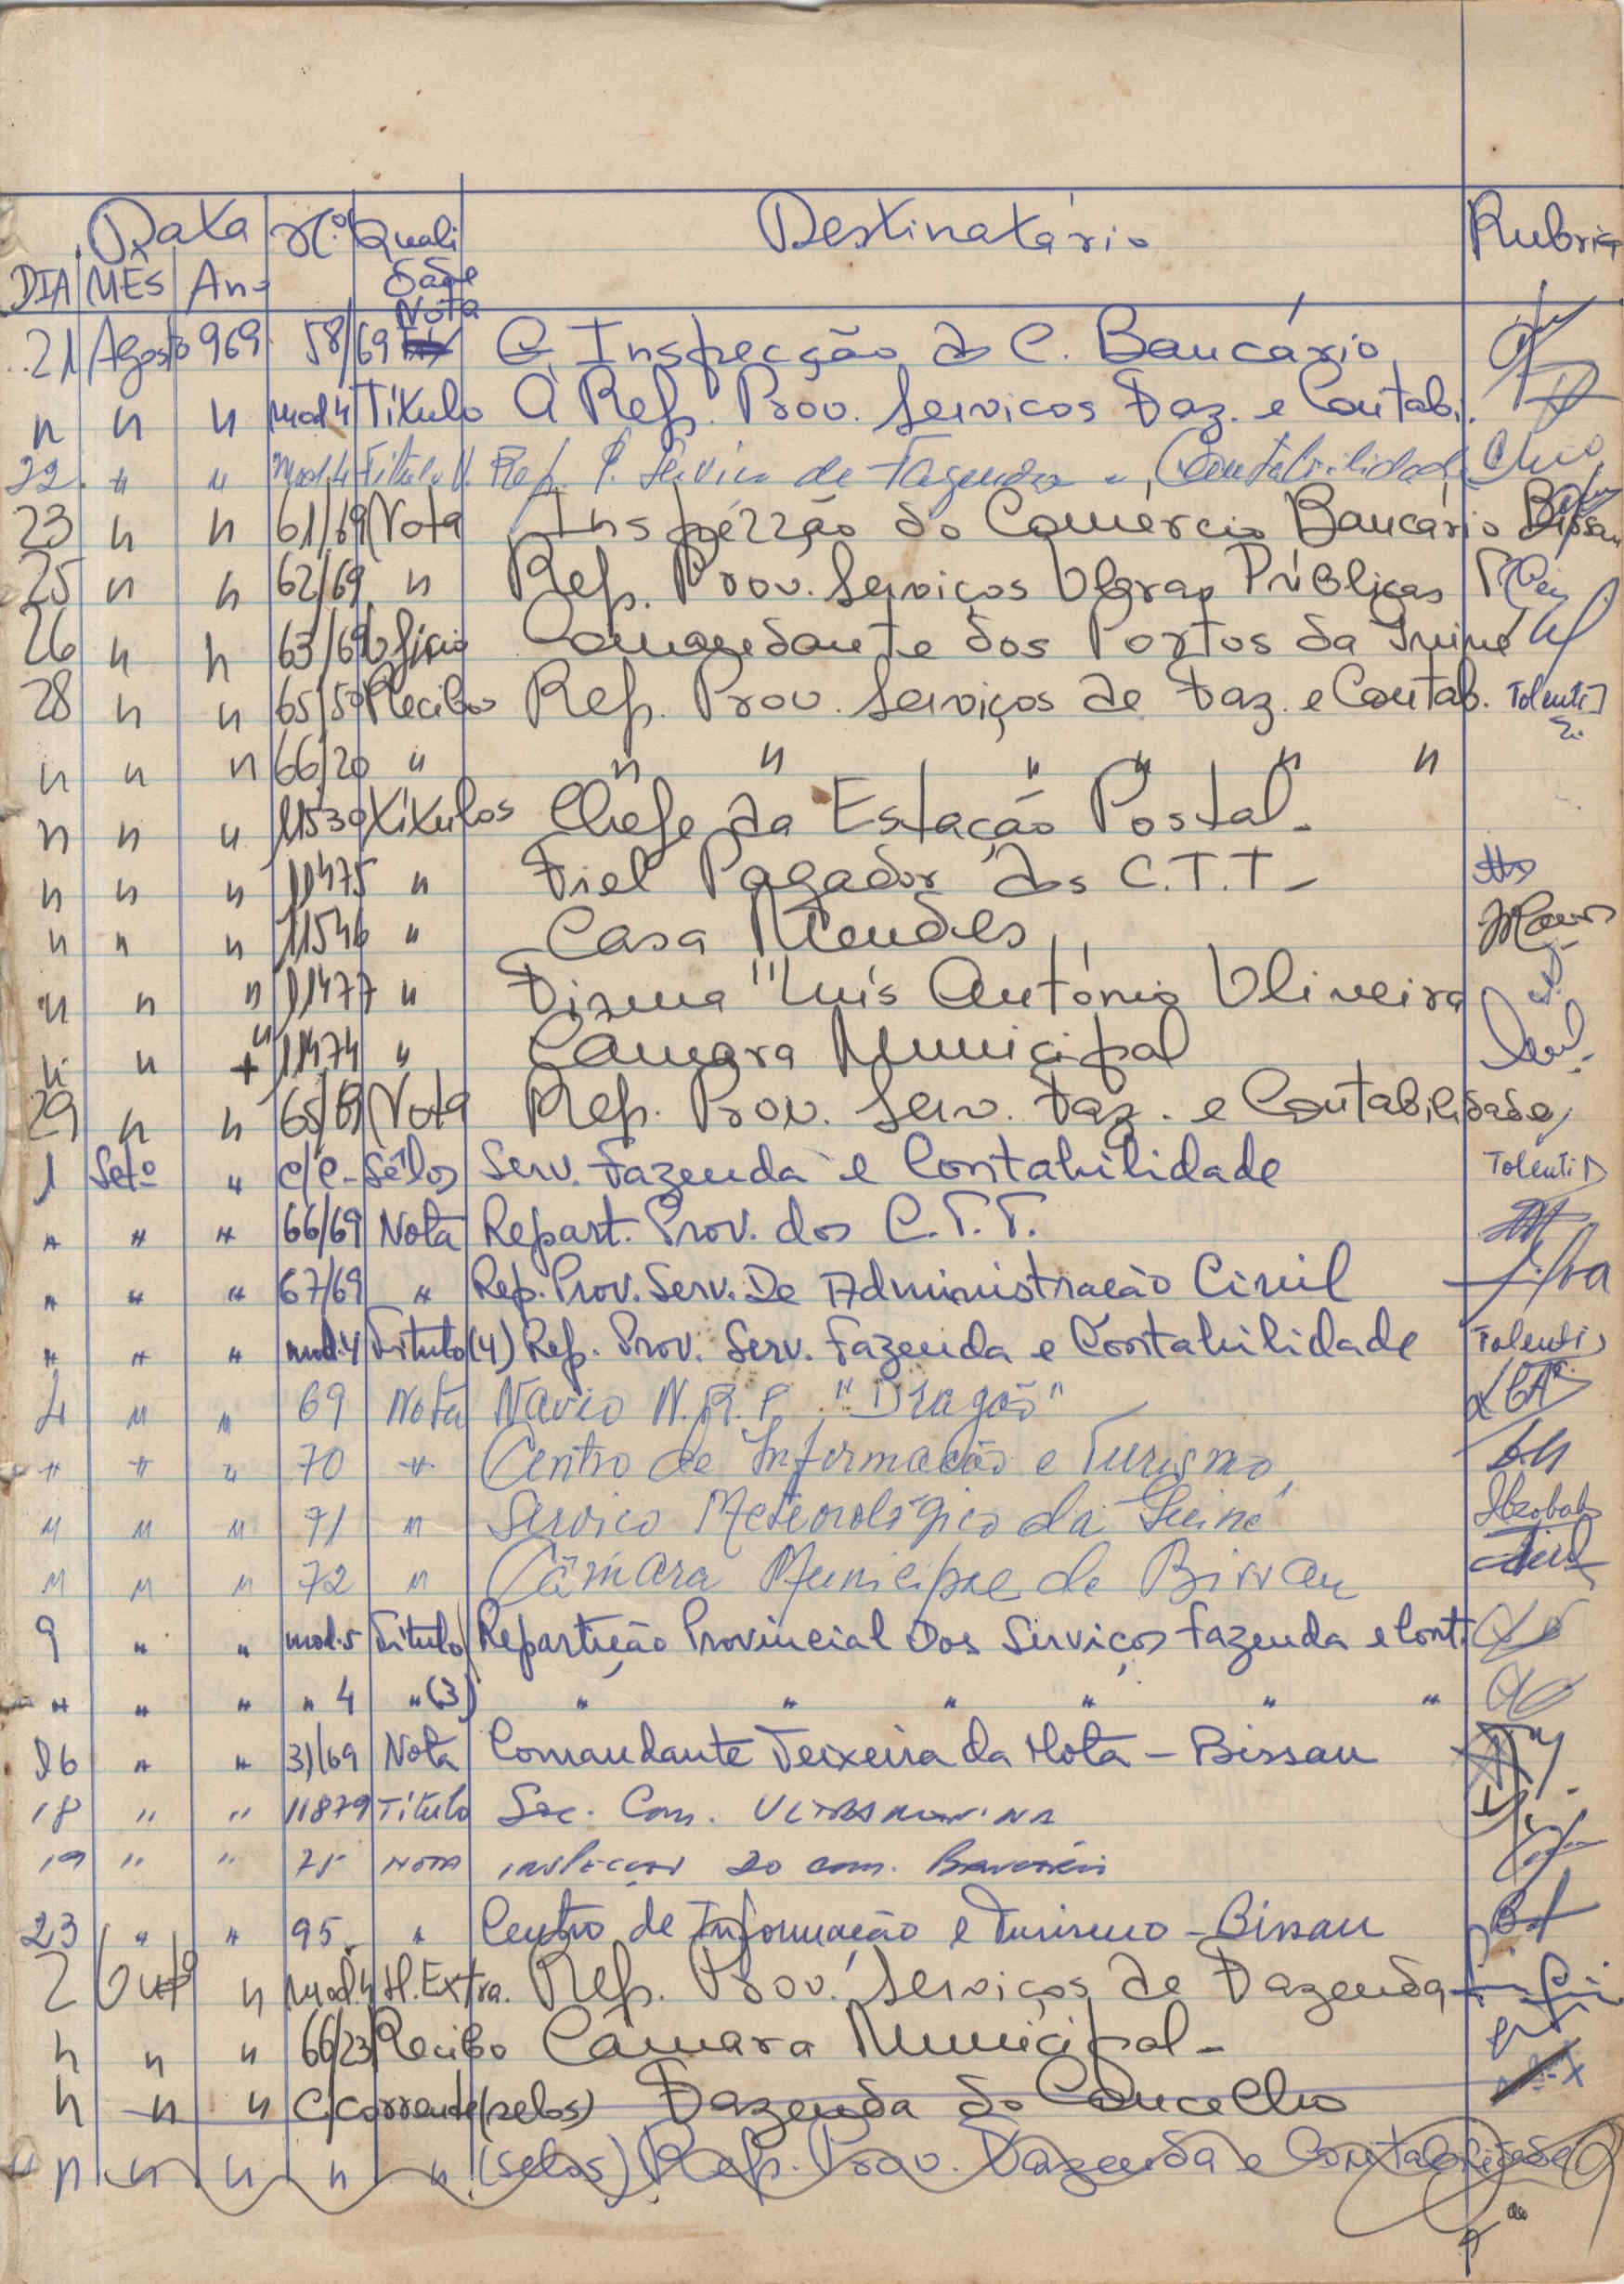 Data N.º Quali Destinatário Rubrica
DIA MÊS Ano dade
Nota
21 Agosto 969 58/69 À Inspecção do C. Bancário
" " " mod 4 Título À Rep. Prov. Serviços Faz. e Contabi.
22 " " Mod.4 Título V. Rep. P. Serviço de Fazenda e Contabilidade
23 " " 61/69 Nota Inspeção do Comércio Bancário Bissau
25 " " 62/69 " Rep. Prov. Serviços Obras Públicas
26 " " 63/69 Ofício Comandante dos Portos da Guiné
28 " " 65/50 Recibos Rep. Prov. Serviços de Faz. e Contab. Tolenti
" " " 66/20 " " " " " " "
" " " 11530 Títulos Chefe da Estação Postal -
" " " 11475 " Fiel Pagador dos C.T.T -
" " " 11546 " Casa Mendes
" " " 11477 " Firma "Luís António Oliveira
" " " 11474 " Câmara Municipal
29 " " 65/69 Nota Rep. Prov. Serv. Faz. e Contabilidade
1 Setº " C/C- Sêlos Serv. Fazenda e Contabilidade Tolenti
" " " 66/69 Nota Repart. Prov. dos C.T.T.
" " " 67/69 " Rep. Prov. Serv. De Administração Civil Silva
" " " mod.4 Título (4) Rep. Prov. Serv. Fazenda e Contabilidade Tolenti
4 " " 69 Nota Navio N.R.P. "Dragão"
" " " 70 " Centro de Informação e Turismo
" " " 71 " Serviço Meteorológico da Guiné
" " " 72 " Câmara Municipal de Bissau
9 " " mod.5 Título Repartição Provincial Dos Serviços Fazenda e Cont.
" " " " 4 " (3) " " " " " "
16 " " 31/69 Nota Comandante Teixeira da Mota - Bissau
18 " " 11879 Título Soc. Com. Ultramarina
19 " " 75 Nota Inspecção do Com. Bancário
23 " " 95 " Centro de Informação e Turismo - Bissau
2 Outº " mod.4 H. Extra. Rep. Prov. Serviços de Fazenda
" " " 66/23 Recibo Câmara Municipal -
" " " C/corrente (selos) Fazenda do Concelho
" " " " " (selos) Rep. Prov. Fazenda e Contabilidade